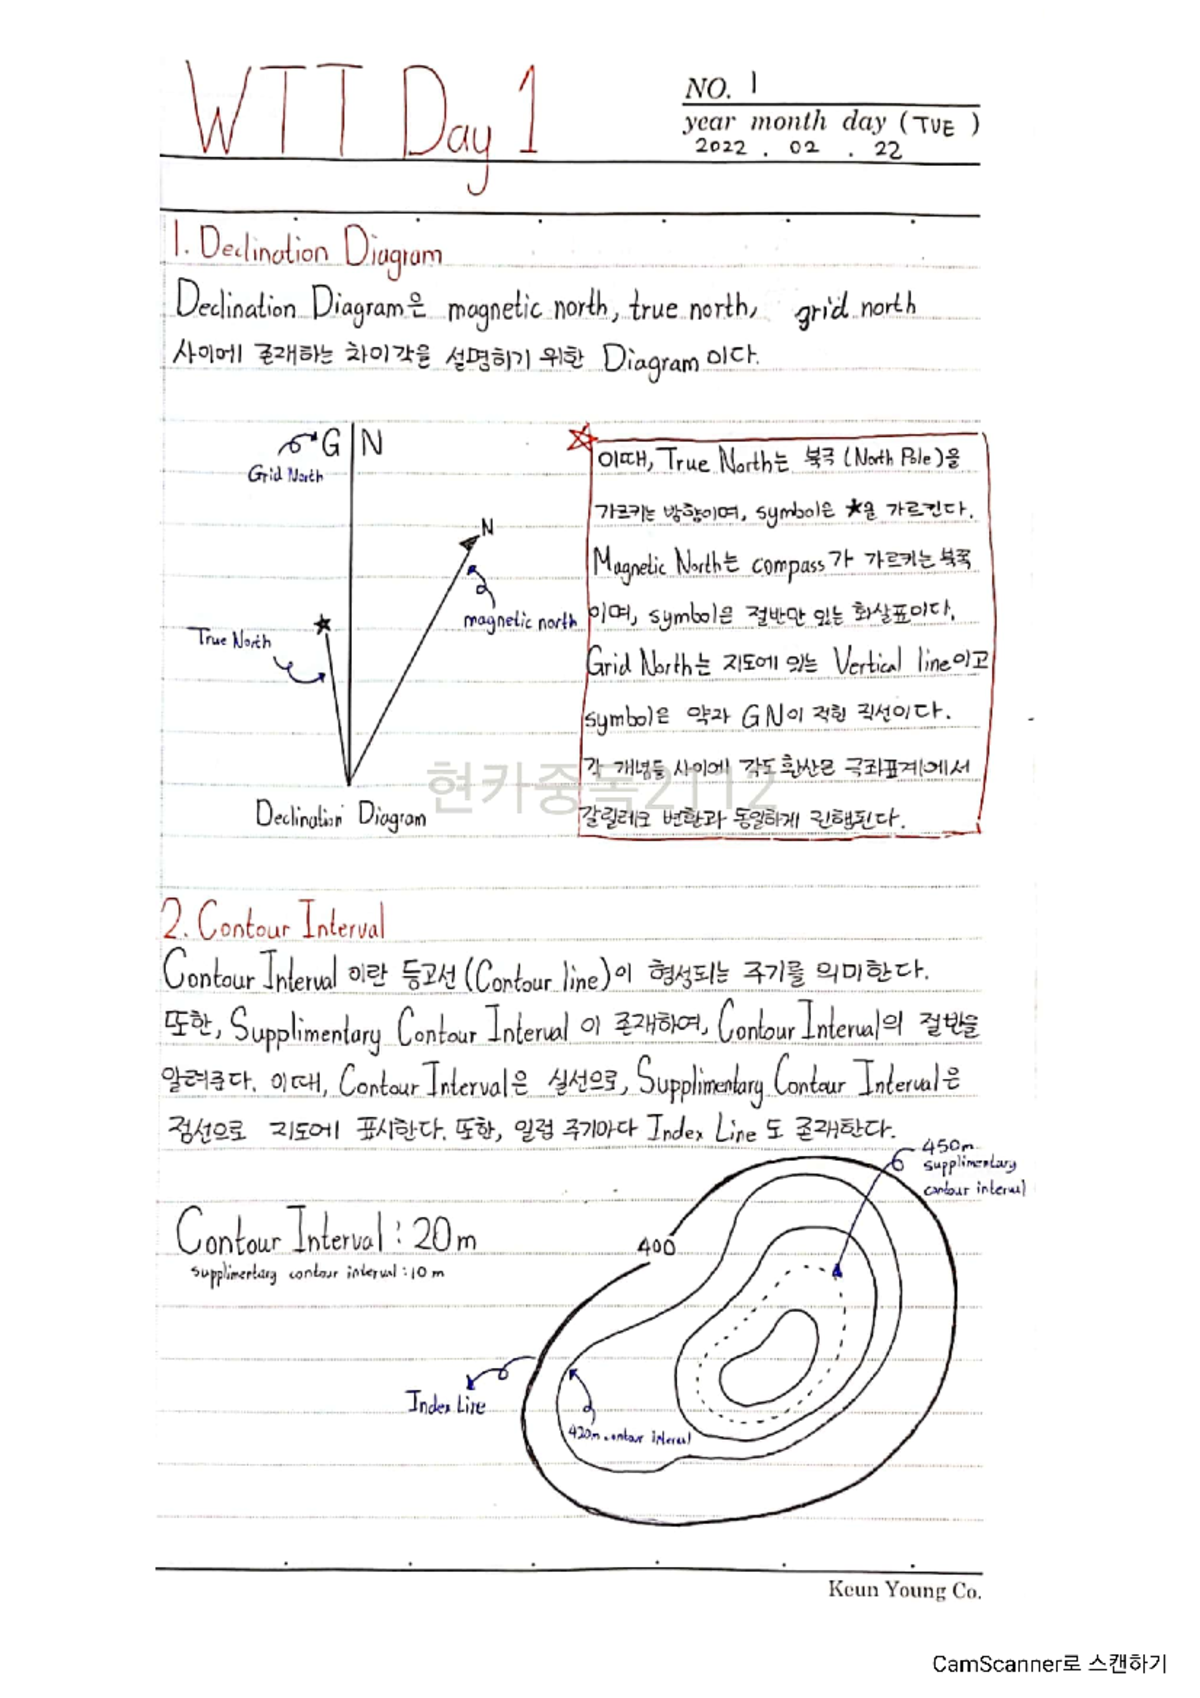 WTT Day 1
NO. 1
year month day (TUE)
2022 . 02 . 22
1. Declination Diagram
Declination Diagram은 magnetic north, true north, grid north
사이에 존재하는 차이각을 설명하기 위한 Diagram이다.
G N
Grid North
N
magnetic north
True North
Declination Diagram
이때, True North는 북극 (North Pole)을
가르키는 방향이며, symbol은 ★을 가르킨다.
Magnetic North는 compass가 가르키는 북쪽
이며, symbol은 절반만 있는 화살표이다.
Grid North는 지도에 있는 Vertical line이고
symbol은 약자 GN이 적힌 직선이다.
각 개념들 사이에 각도 환산은 극좌표계에서
갈릴레오 변환과 동일하게 진행된다.
현카중독2112
2. Contour Interval
Contour Interval 이란 등고선 (Contour line)이 형성되는 주기를 의미한다.
또한, Supplimentary Contour Interval 이 존재하여, Contour Interval의 절반을
알려준다. 이때, Contour Interval은 실선으로, Supplimentary Contour Interval은
점선으로 지도에 표시한다. 또한, 일정 주기마다 Index Line도 존재한다.
450m
supplimentary
contour interval
Contour Interval : 20m
supplimentary contour interval : 10 m
400
Index Line
420m contour interval
Keun Young Co.
CamScanner로 스캔하기